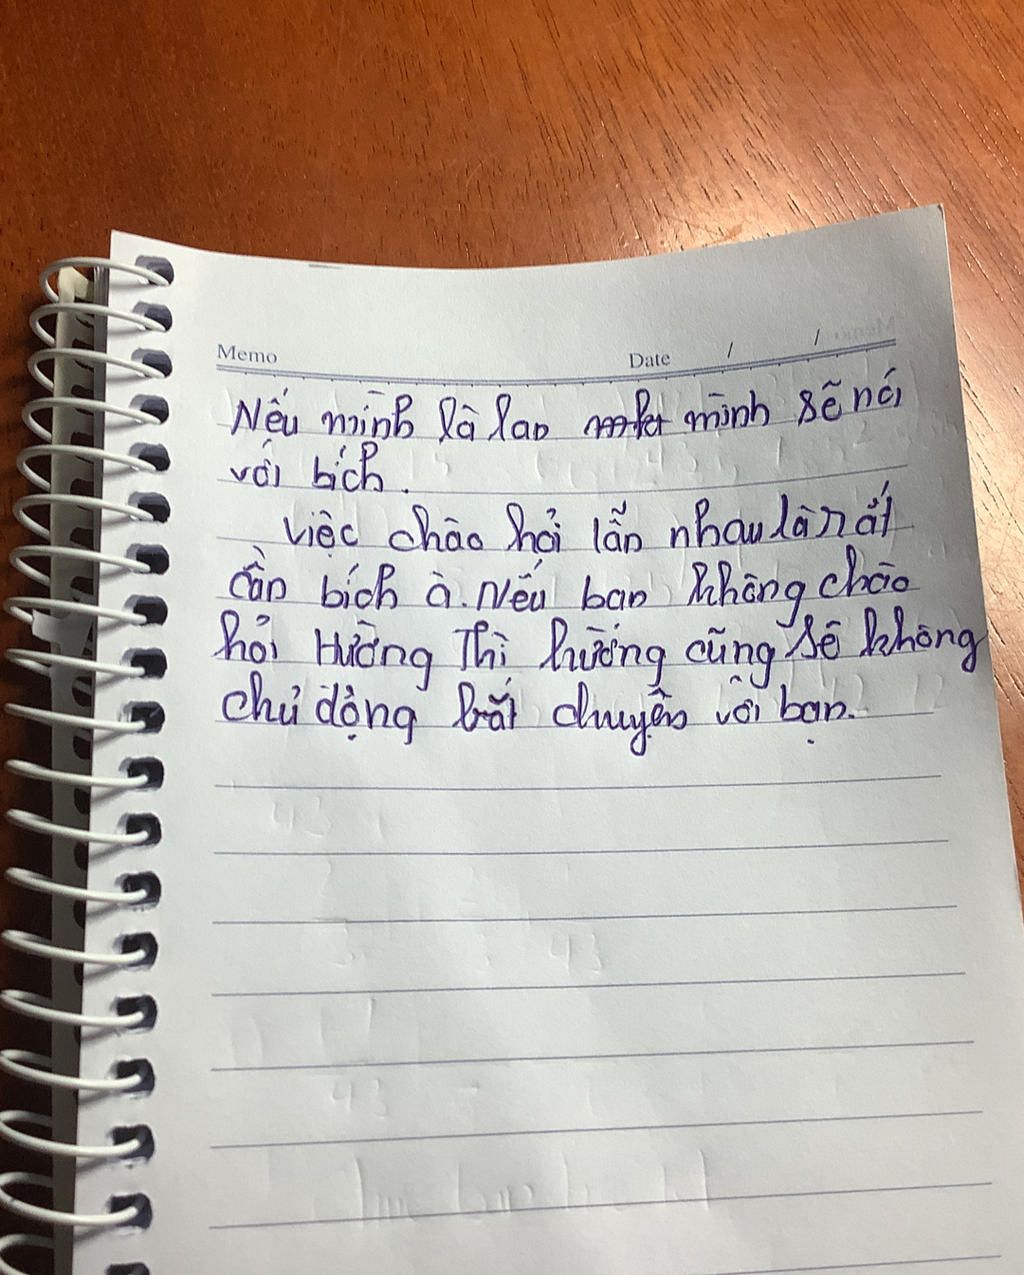 Memo Date / /
Nếu mình là lan mình sẽ nói
với bích.
việc chào hỏi lẫn nhau là rất
cần bích à. Nếu bạn không chào
hỏi Hường Thì hường cũng sẽ không
chủ động bắt chuyện với bạn.